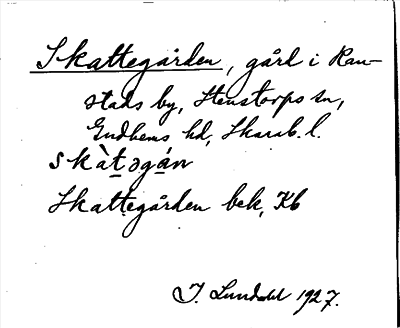 Skattegården, gård i Ran-
stads by, Stenstorps sn,
Gudhems hd, Skarab. l.
skàt̲əgá̲n
Skattegården bek, Kb
I. Lundahl 1927.